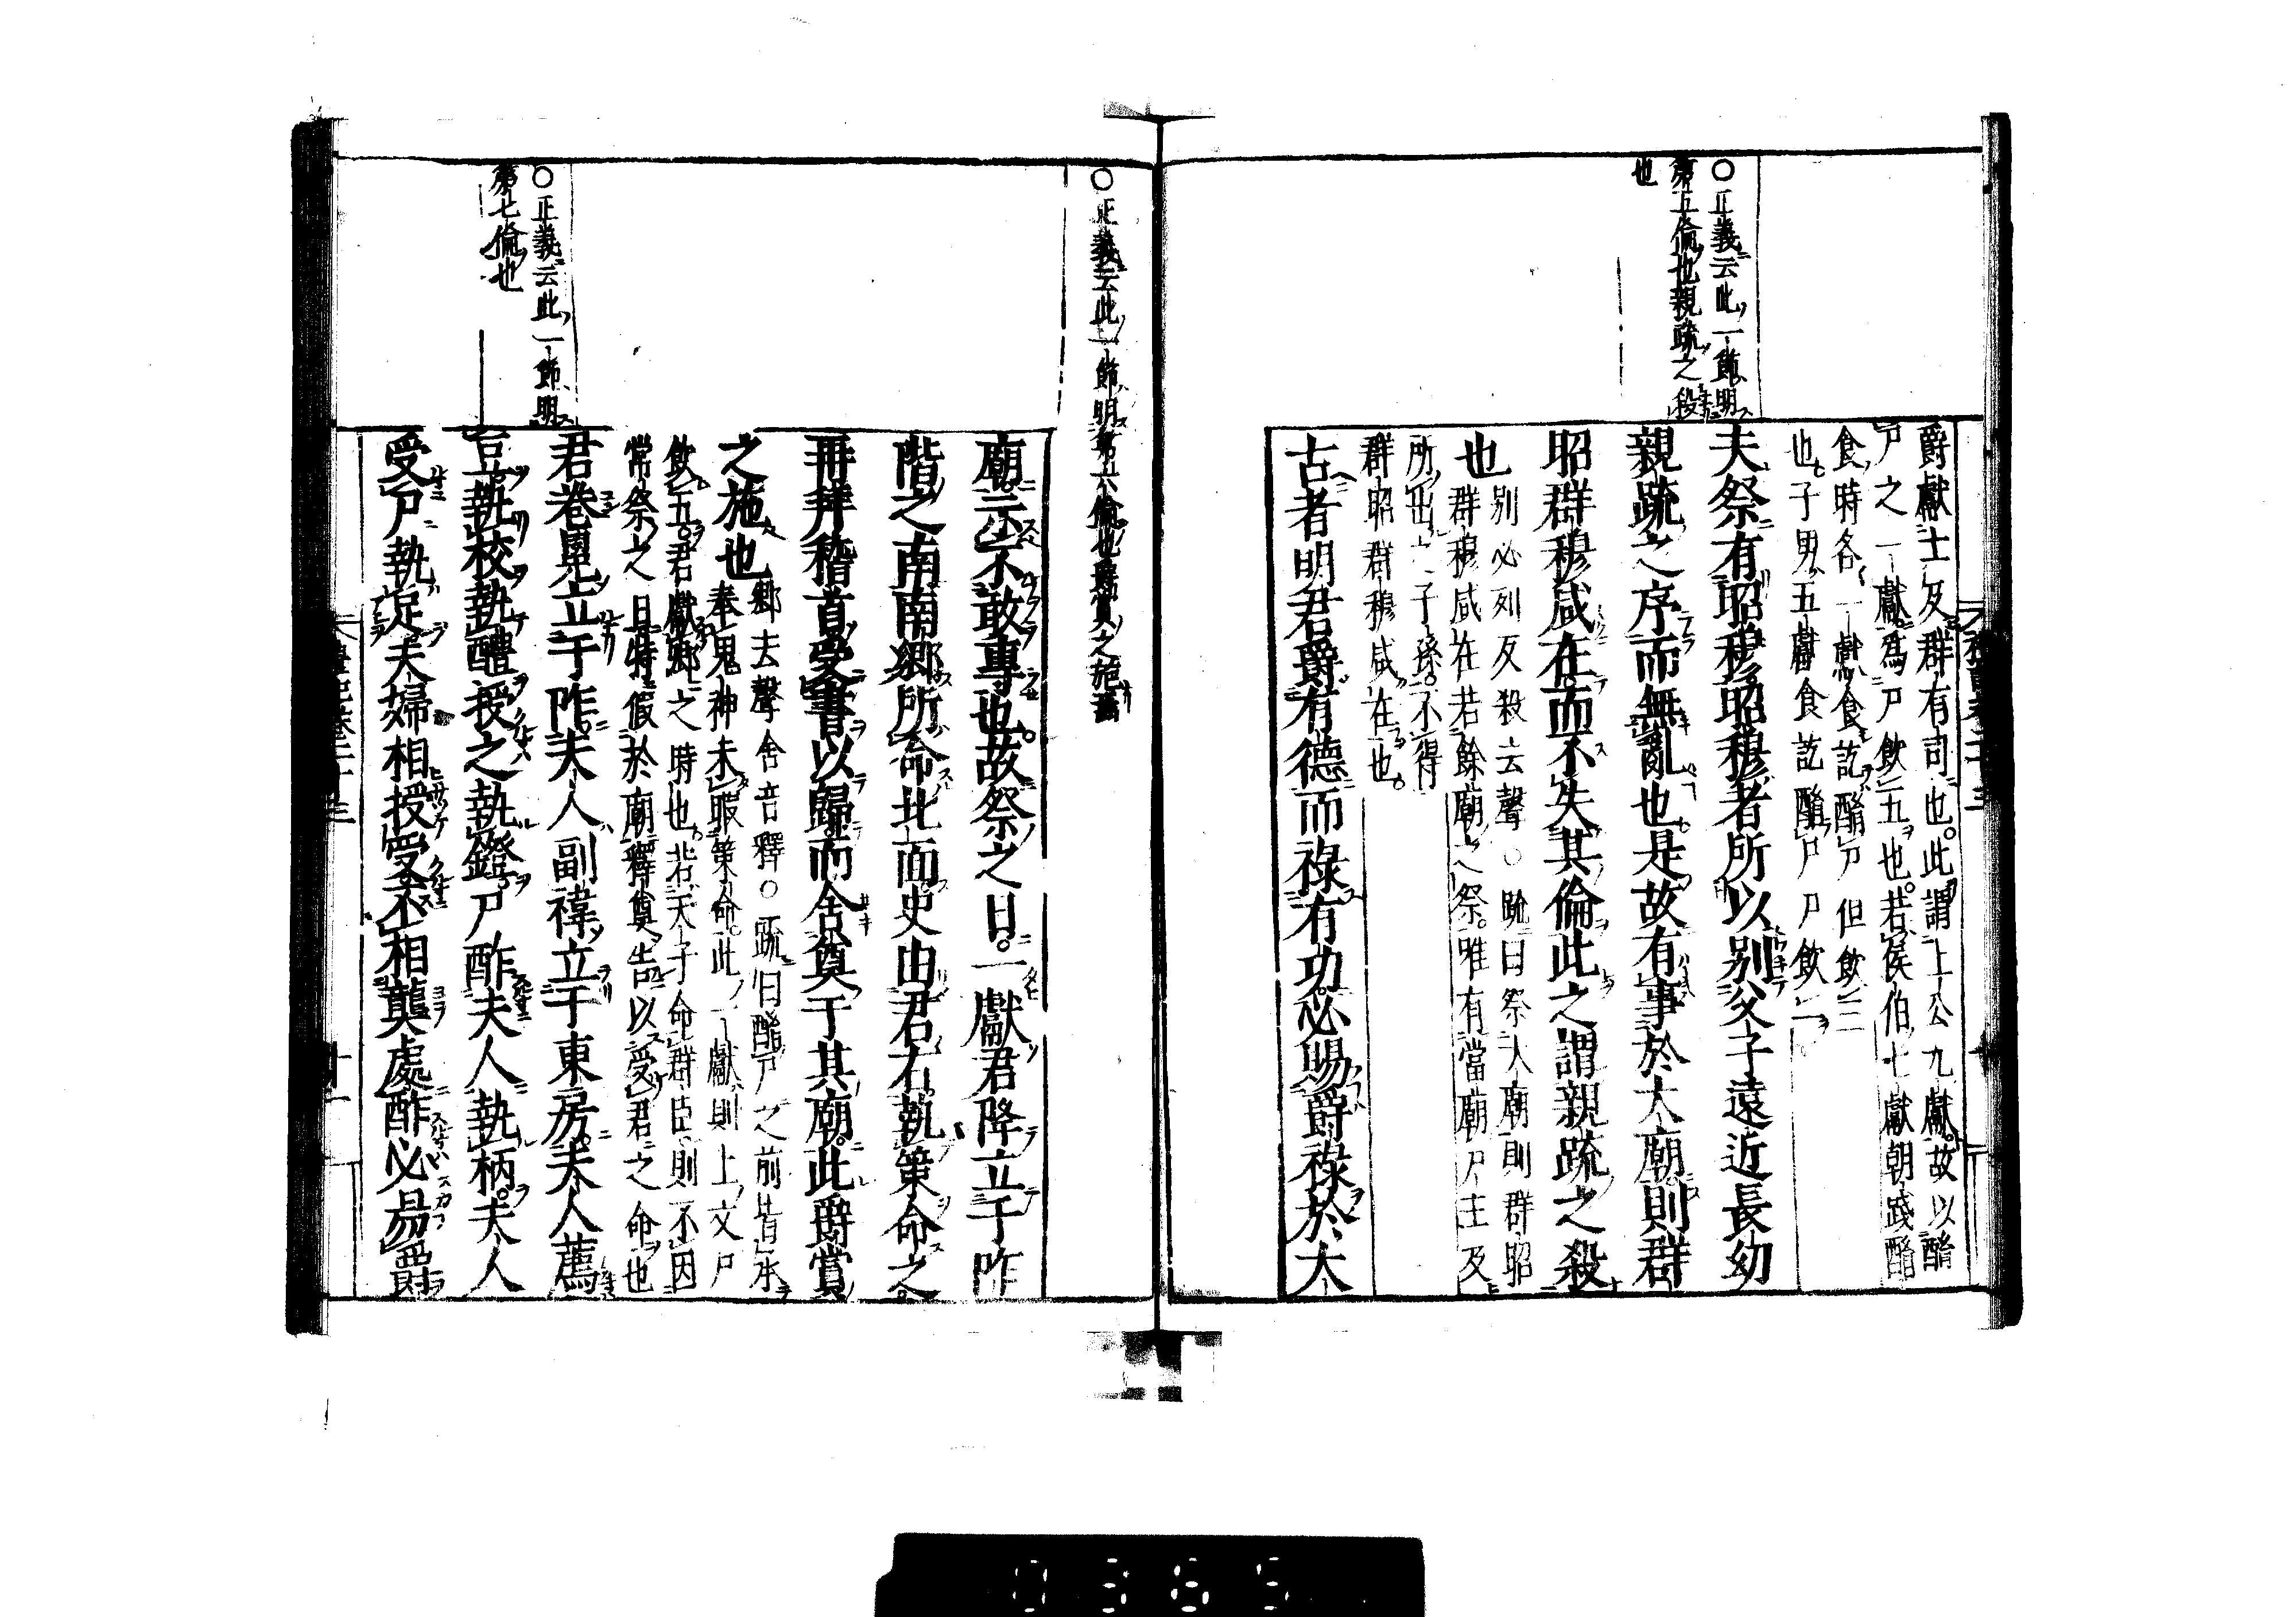 ○正義云此一節明
第五倫也親疏之殺
也
爵獻士及群有司也此謂上公九獻故以酳
尸之一獻為尸飲五也若侯伯七獻朝踐酳
食時各一獻食訖酳尸但飲三
也子男五獻食訖酳尸尸飲一
夫祭有昭穆昭穆者所以別父子遠近長幼
親疏之序而無亂也是故有事於大廟則群
昭群穆咸在而不失其倫此之謂親疏之殺
也
別必列反殺去聲○疏曰祭大廟則群昭
群穆咸在若餘廟之祭唯有當廟尸主及
所出之子孫不得
群昭群穆咸在也
古者明君爵有德而祿有功必賜爵祿於大
○正義云此一節明第六倫也爵賞之施
廟示不敢專也故祭之日一獻君降立于阼
階之南南鄉所命北面史由君右執策命之
再拜稽首受書以歸而舍奠于其廟此爵賞
之施也
鄉去聲舍音釋○疏曰酳尸之前皆承
奉鬼神未暇策命此一獻則上文尸
飲五君獻卿之時也若天子命群臣則不因
常祭之日特假於廟釋奠告以受君之命也
○正義云此一節明
第七倫也
君卷冕立于阼夫人副褘立于東房夫人薦
豆執校執醴授之執鐙尸酢夫人執柄夫人
受尸執足夫婦相授受不相襲處酢必易爵
禮記卷二十三